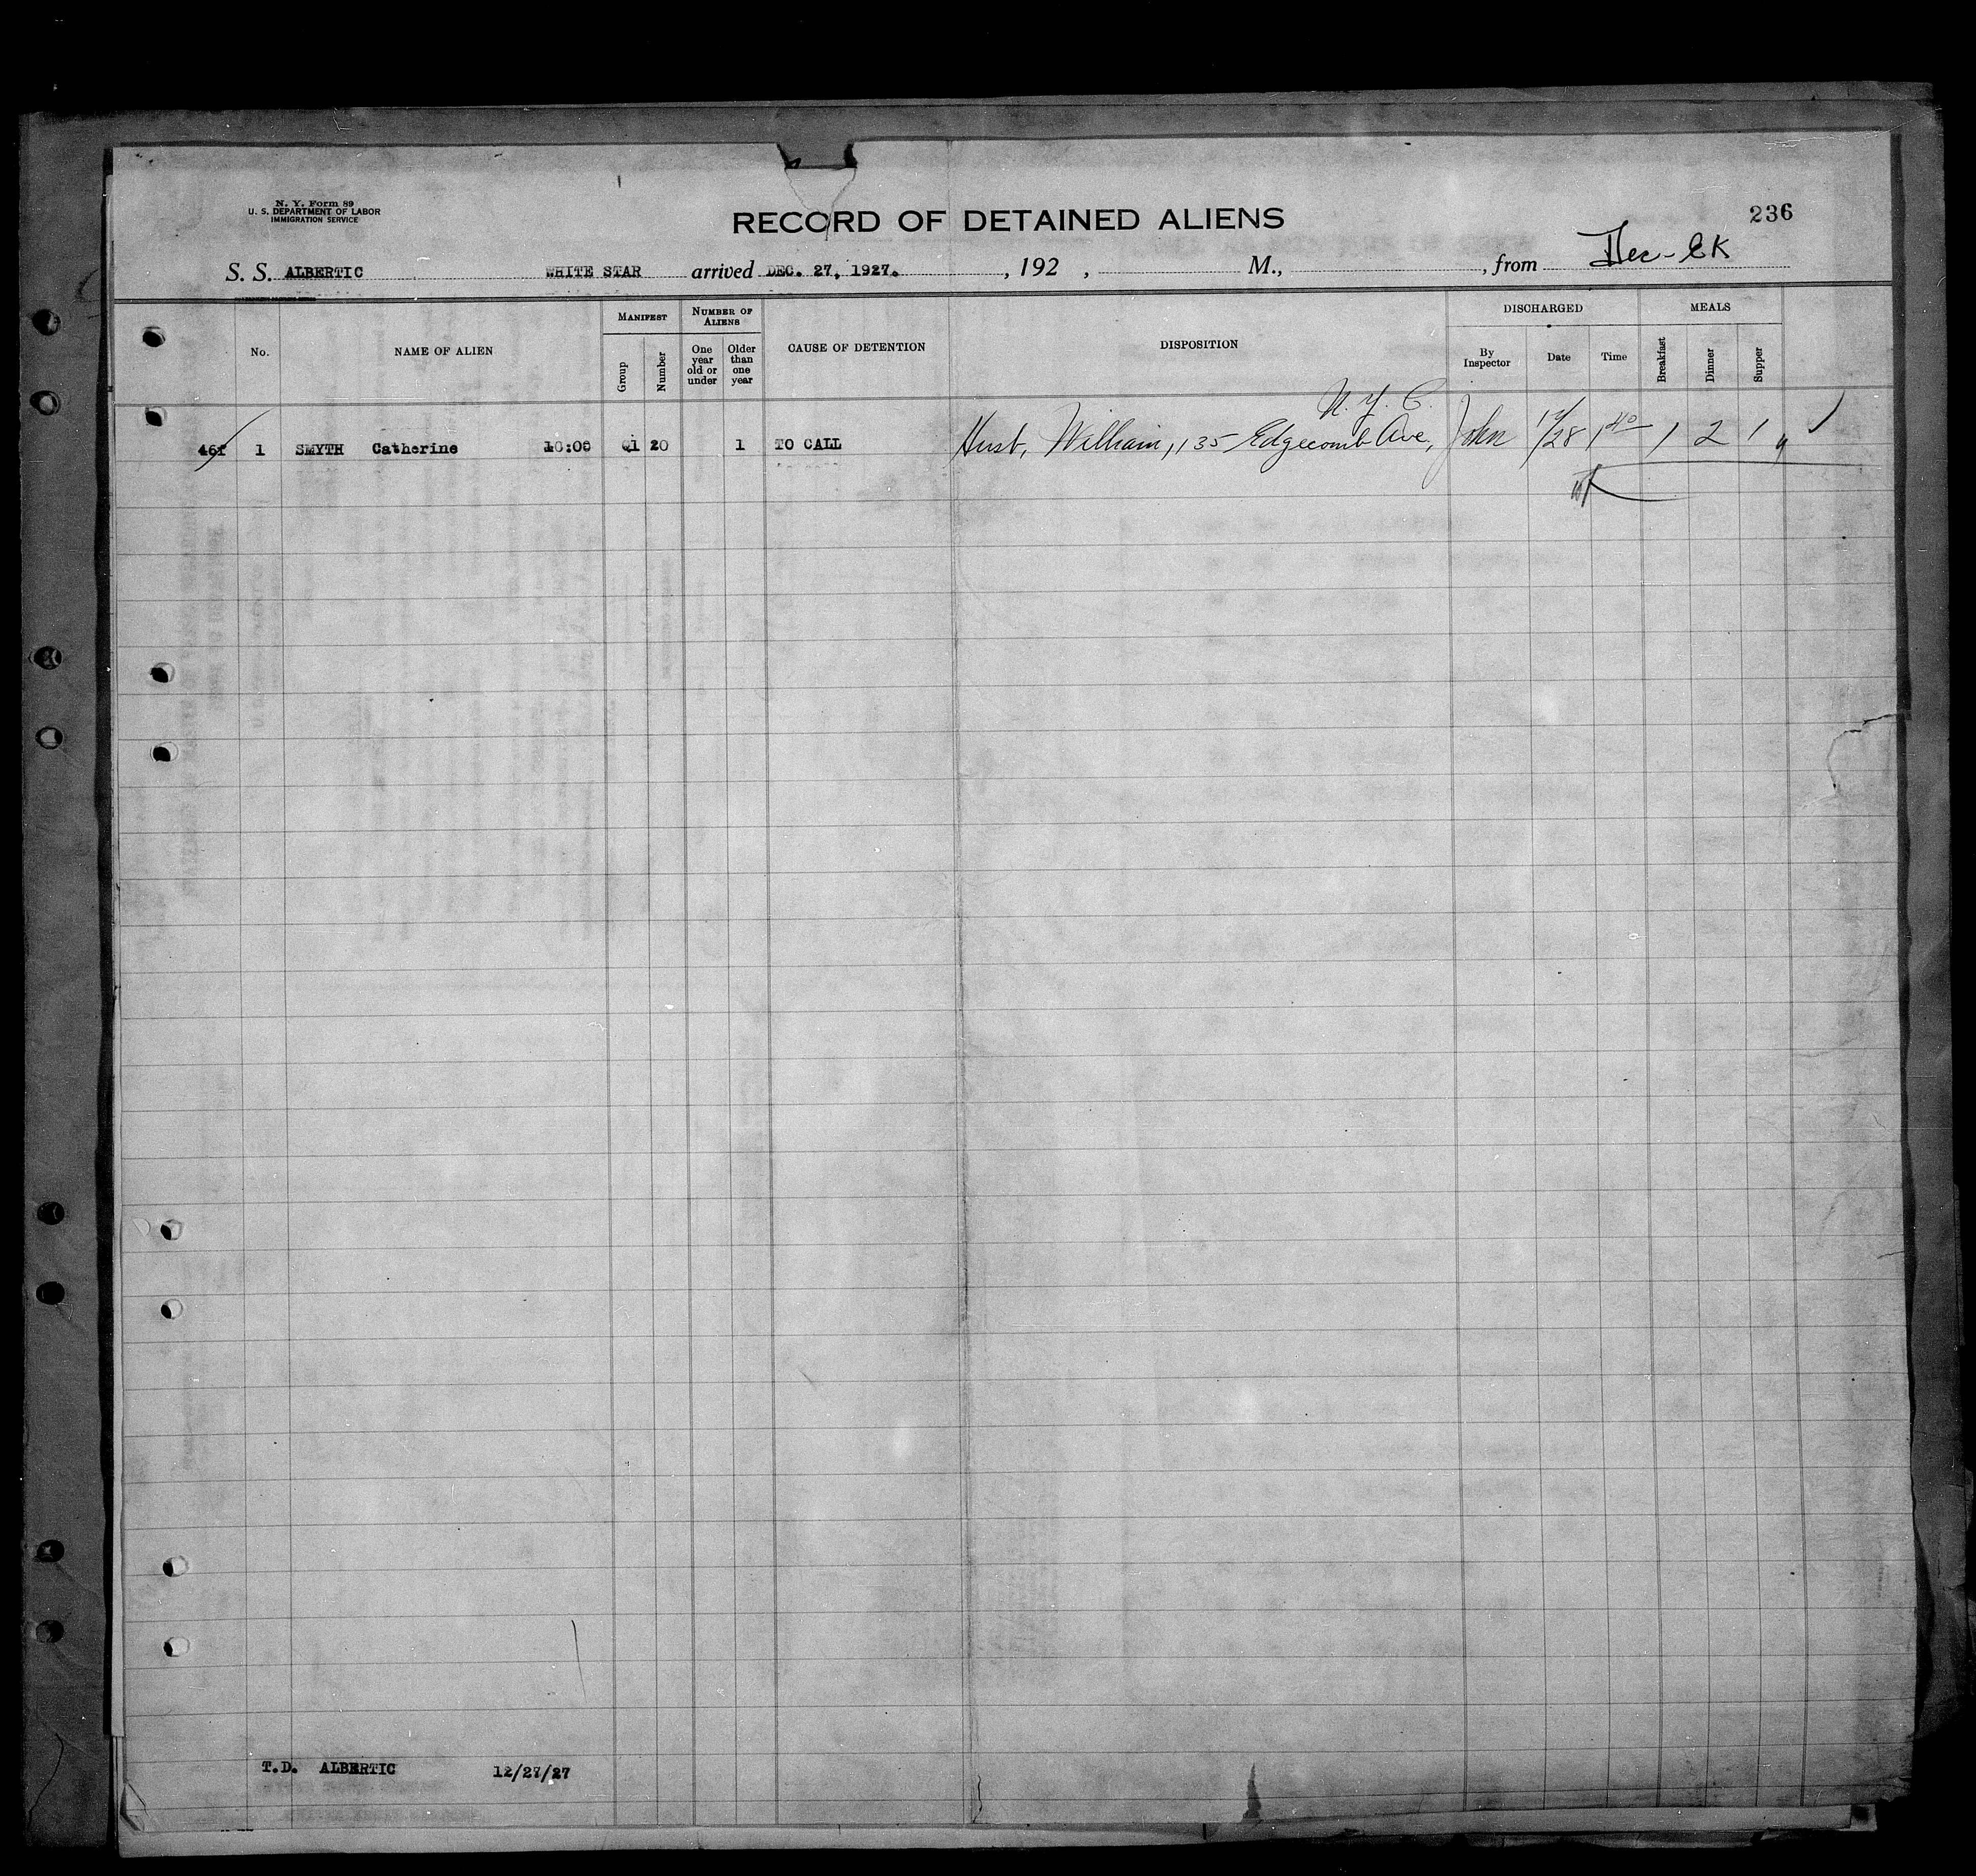 N. Y. Form 89
U. S. DEPARTMENT OF LABOR
IMMIGRATION SERVICE
RECORD OF DETAINED ALIENS
236
S. S. ALBERTIC WHITE STAR arrived DEC. 27, 1927. , 192 , M., , from
No.
NAME OF ALIEN
MANIFEST
Group
Number
NUMBER OF ALIENS
One year old or under
Older than one year
CAUSE OF DETENTION
DISPOSITION
DISCHARGED
By Inspector
Date
Time
MEALS
Breakfast
Dinner
Supper
N. Y. C.
1 SMYTH Catherine 10:00 20 1 TO CALL Husb, William, 135 Edgecomb Ave, John 12/28 1 40 1 2 1
T.D. ALBERTIC 12/27/27